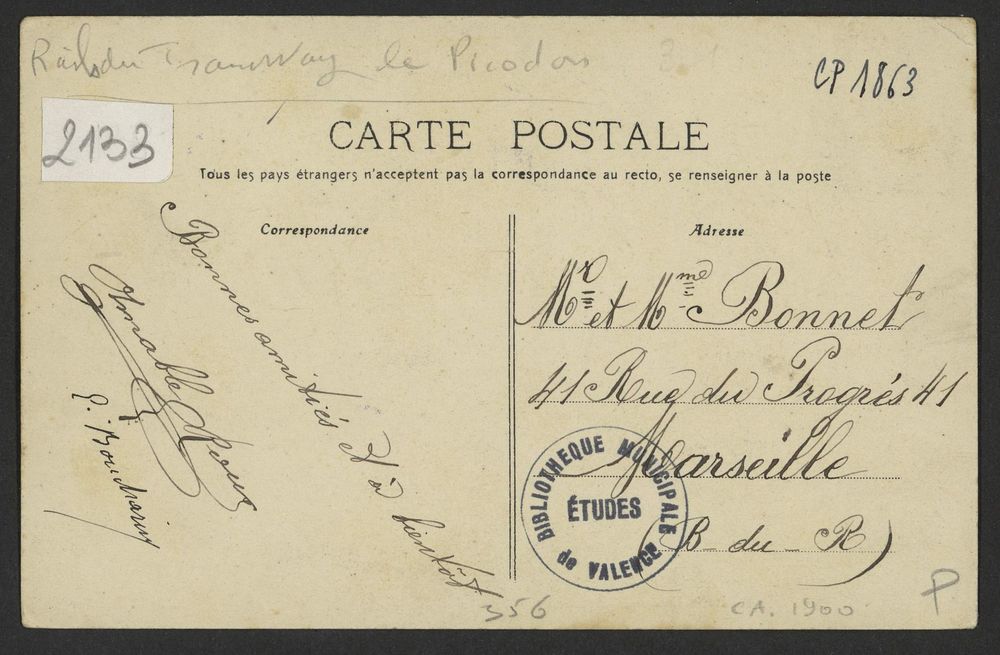 Rails du Tramway le Picodon
CP 1863
2133
CARTE POSTALE
Tous les pays étrangers n'acceptent pas la correspondance au recto, se renseigner à la poste
Correspondance
Bonnes amitiés et à bientôt
Amable Roux
Adresse
Mr et Mme Bonnet
41 Rue du Progrès 41
Marseille
(B du R)
BIBLIOTHEQUE MUNICIPALE
ÉTUDES
de VALENCE
356
CA. 1900
P